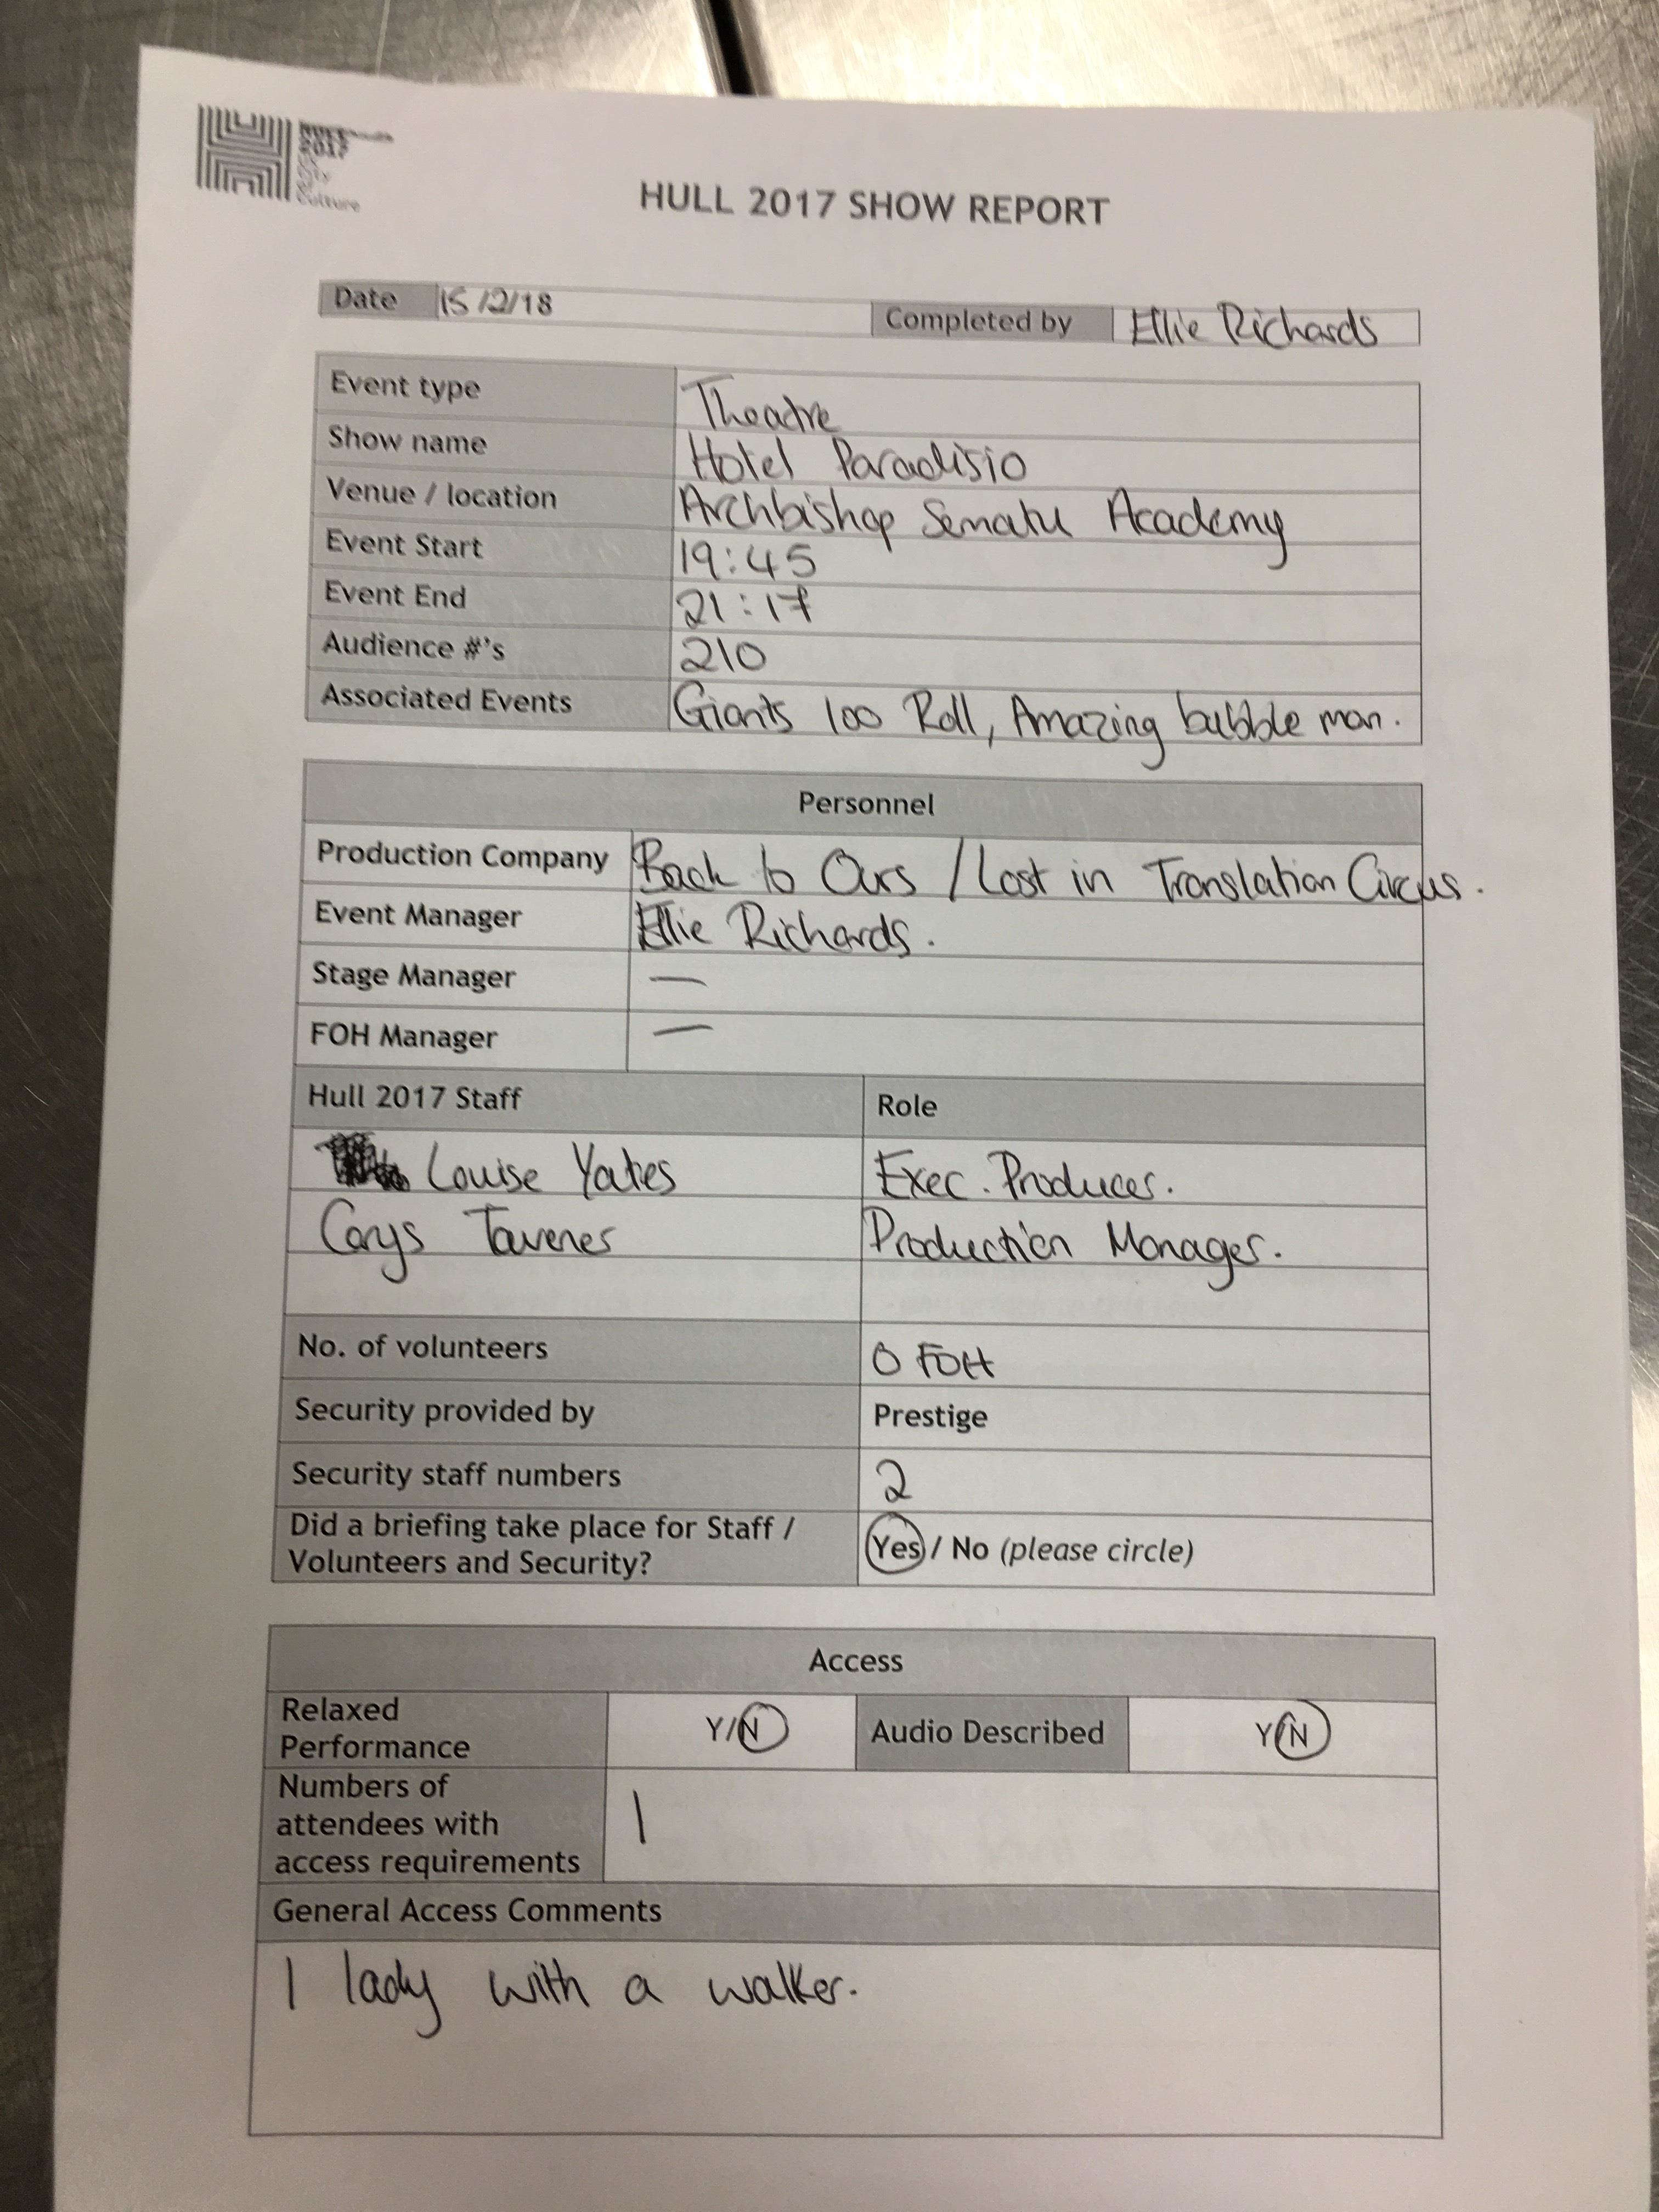 HULL
2017
UK
City
of
Culture
HULL 2017 SHOW REPORT
Date 15/2/18 Completed by Ellie Richards
Event type Theatre
Show name Hotel Paradisio
Venue / location Archbishop Sematu Academy
Event Start 19:45
Event End 21:17
Audience #'s 210
Associated Events Giants 100 Roll, Amazing bubble man.
Personnel
Production Company Back to Ours / Lost in Translation Circus.
Event Manager Ellie Richards.
Stage Manager —
FOH Manager —
Hull 2017 Staff Role
Louise Yates Exec. Producer.
Carys Tavener Production Manager.
No. of volunteers 0 FOH
Security provided by Prestige
Security staff numbers 2
Did a briefing take place for Staff / Yes / No (please circle)
Volunteers and Security?
Access
Relaxed
Performance Y/N Audio Described Y/N
Numbers of
attendees with 1
access requirements
General Access Comments
1 lady with a walker.